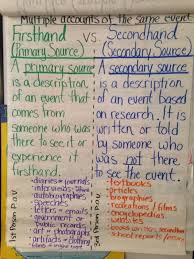 Multiple accounts of the same event
Firsthand VS Secondhand
(Primary Source) (Secondary Source)
A primary source
is a description
of an event that
comes from
someone who was
there to see it or
experience it
firsthand.
diaries, journals,
interviews
autobiographies
speeches
letters, emails
government or
Public Records
art, photographs
artifacts, clothing
1st Person P.O.V.
A secondary source
is a description
of an event based
on research. It is
written or told
by someone who
was not there
to see the event.
textbooks
articles
biographies
recreations / films
encyclopedias
websites
books written secondhand
school reports/
3rd Person P.O.V.